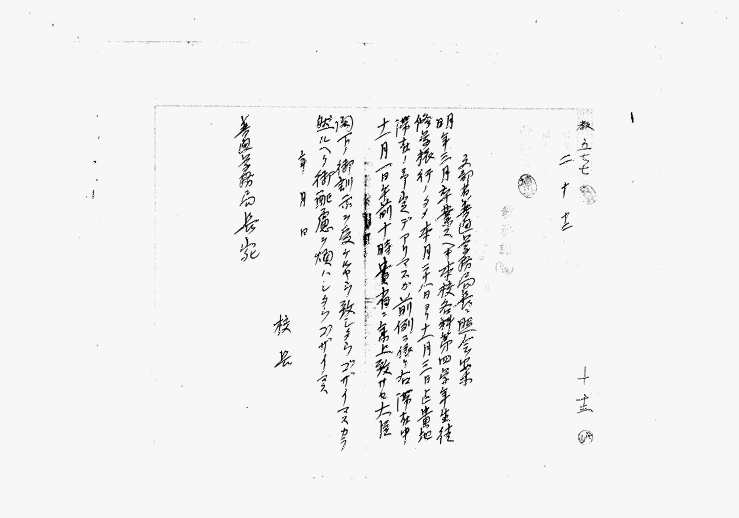 教五七七
二十三
文部省普通学務局長ニ照会案
明年三月卒業スヘキ本校各科第四学年生徒
修学旅行ノタメ本月二十八日ヨリ十一月三日迄貴地
滞在ノ予定デアリマスガ前例ニ依リ右滞在中
十一月一日午前十時貴省ニ参上致サセ大臣
閣下ノ御訓示ヲ受ケルヤウ致シタウゴザイマスカラ
然ルヘク御配慮ヲ煩ハシタウゴザイマス
年月日
校長
普通学務局長宛